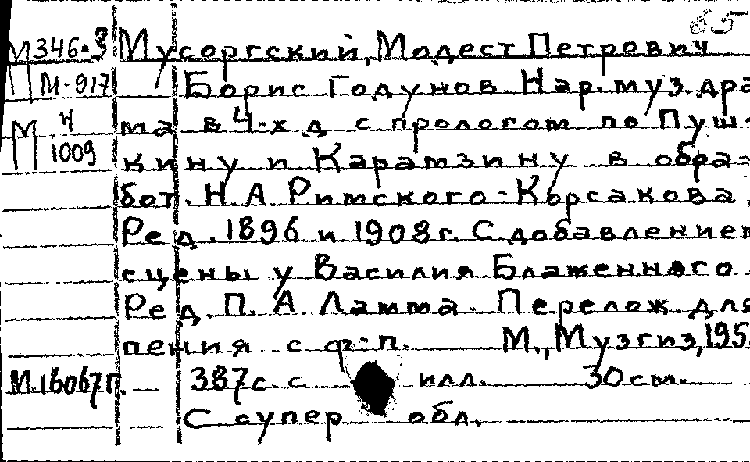 65
М346-3 Мусоргский, Модест Петрович
М-917 Борис Годунов Нар. муз. дра
М Ч ма в 4-х д с прологом по Пуш-
1009 кину и Карамзину в обра
бот. Н А Римского-Корсакова.
Ред. 1896 и 1908 г. С добавлением
сцены у Василия Блаженного.
Ред. П. А. Ламма. Перелож для
пения с ф-п. М., Музгиз, 195
М.16067г. — 387с. с илл. 30см.
С супер обл.